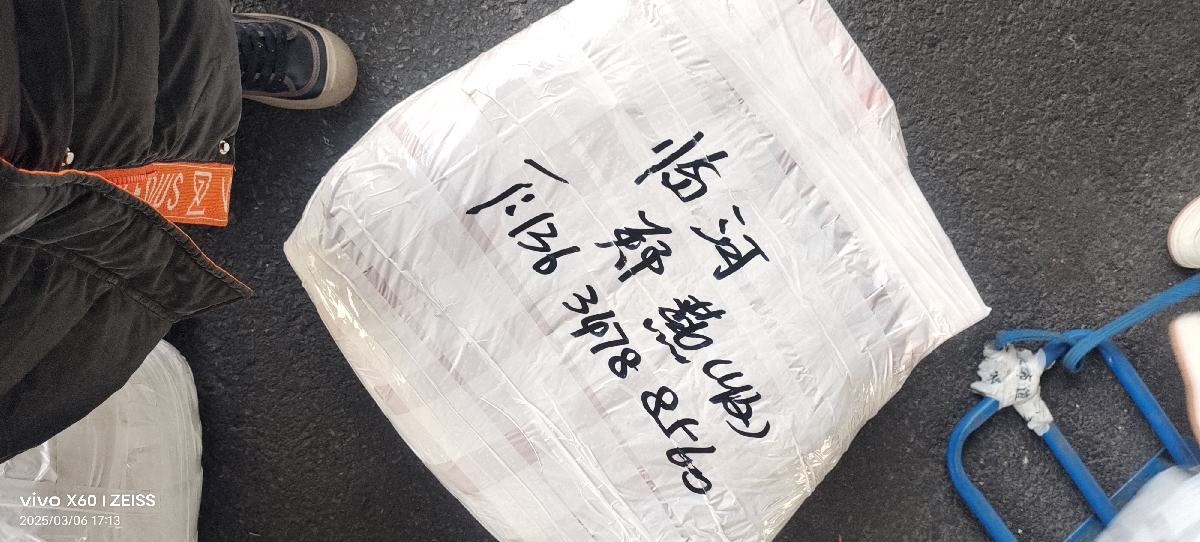 临河
郑燕(收)
T:136 3478 8560
vivo X60 | ZEISS
2025/03/06 17:13